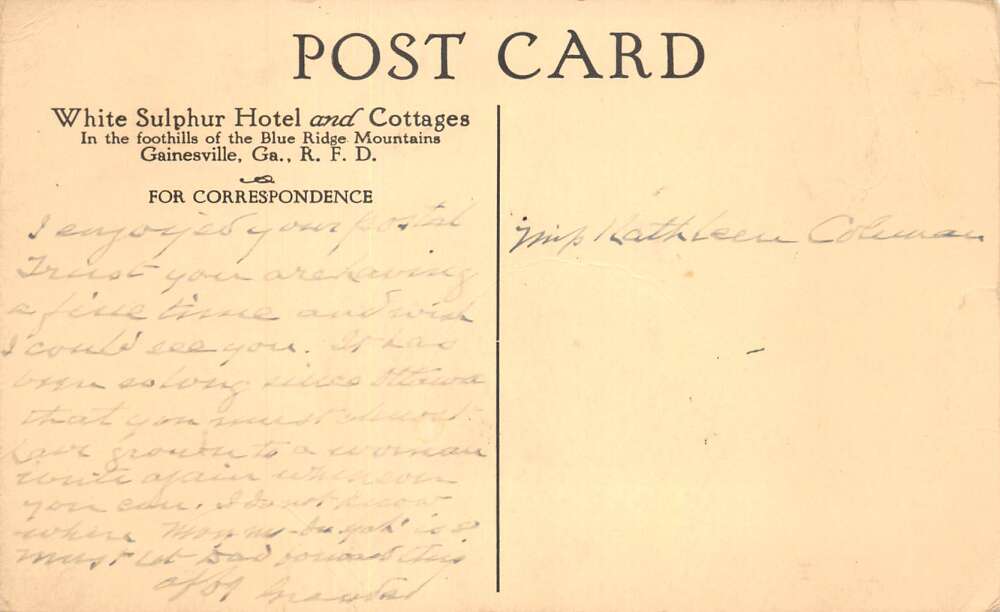 POST CARD
White Sulphur Hotel and Cottages
In the foothills of the Blue Ridge Mountains
Gainesville, Ga., R. F. D.
FOR CORRESPONDENCE
I enjoyed your postal
Trust you are having
a fine time and wish
I could see you. It has
been so long since Ottawa
that you must almost
have grown to a woman
write again whenever
you can. I do not know
where is so
must let Dad forward this
Miss Kathleen Coleman